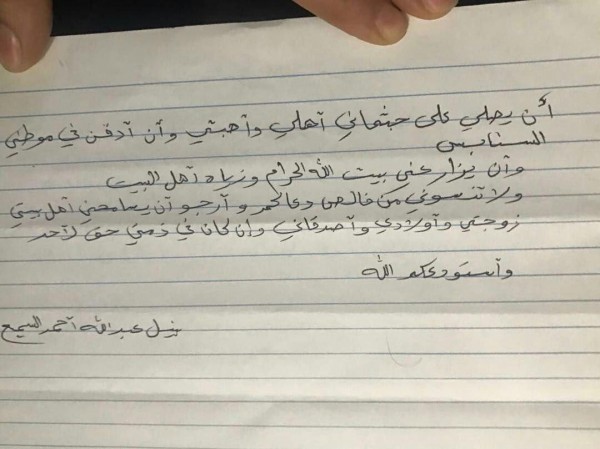 أن يصلي على جثماني أهلي وأحبتي وأن أدفن في موطني
السنابس
وأن يزار عني بيت الله الحرام وزيارة أهل البيت
ولا تنسوني من خالص دعاكم وأرجو أن يسامحني أهل بيتي
زوجتي وأولادي وأصدقائي وإن كان في ذمتي حق لأحد
وأستودعكم الله
نبيل عبدالله أحمد السميع